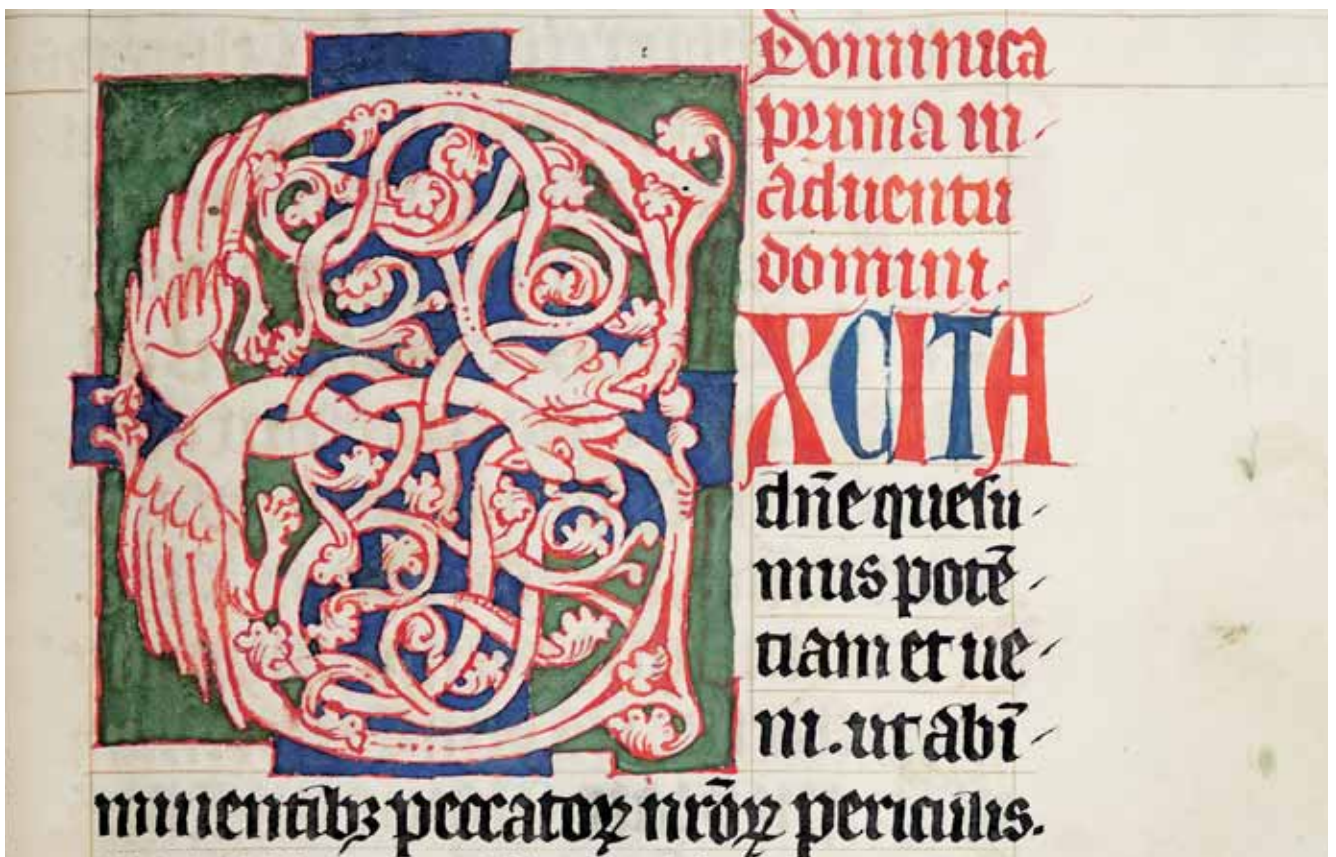 Dominica
prima in-
aduentu
domini.
EXCITA
dn̄e quesu-
mus potē-
tiam et ue-
ni. ut ab ī-
minentibꝫ peccatoꝝ nr̄oꝝ periculis.